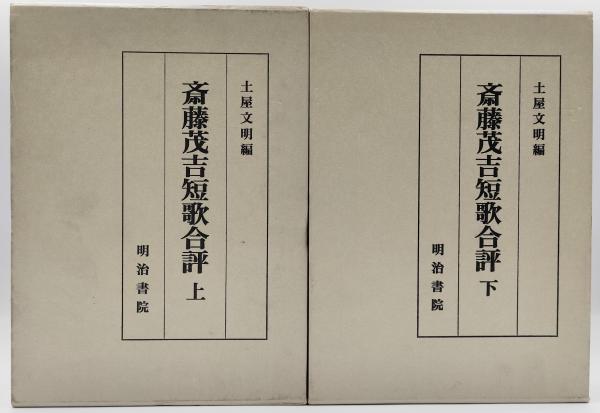 土屋文明編
斎藤茂吉短歌合評 上
明治書院
土屋文明編
斎藤茂吉短歌合評 下
明治書院